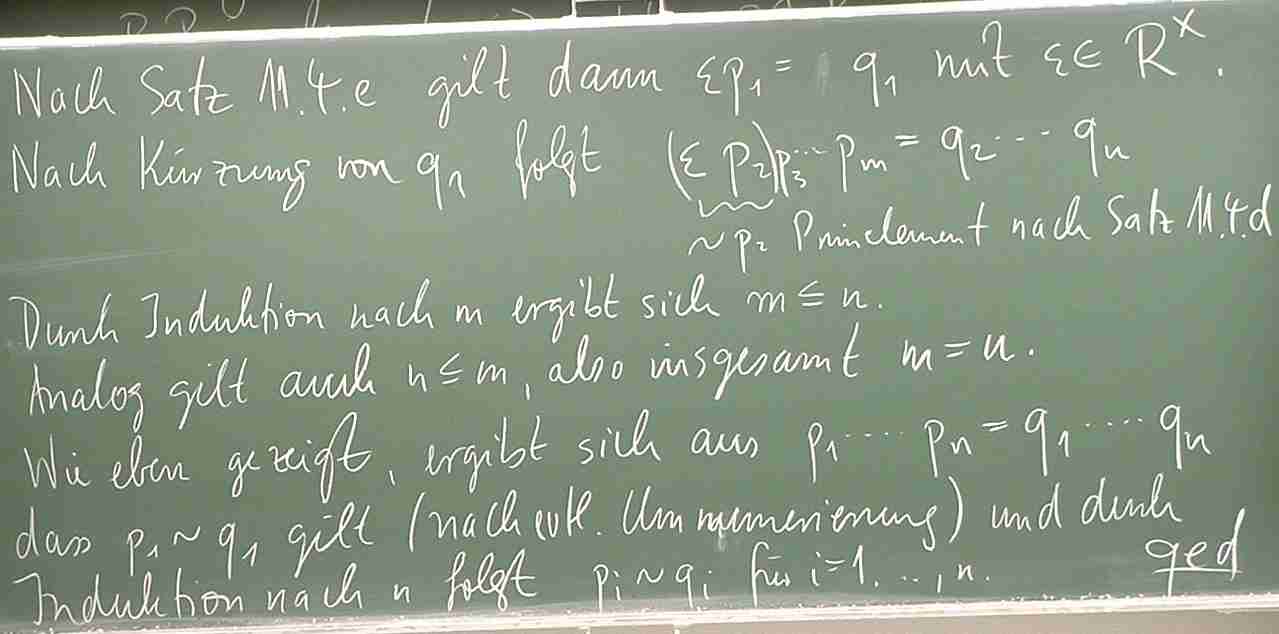 Nach Satz 11.4.e gilt dann εp₁ = q₁ mit ε ∈ R^×.
Nach Kürzung von q₁ folgt (ε p₂)p₃ ⋯ pₘ = q₂ ⋯ qₙ
~ p₂ Primelement nach Satz 11.4.d
Durch Induktion nach m ergibt sich m ≤ n.
Analog gilt auch n ≤ m, also insgesamt m = n.
Wie eben gezeigt, ergibt sich aus p₁ ⋯ pₙ = q₁ ⋯ qₙ
dass p₁ ~ q₁ gilt (nach evtl. Umnummerierung) und durch
Induktion nach n folgt pᵢ ~ qᵢ für i=1, ..., n. qed